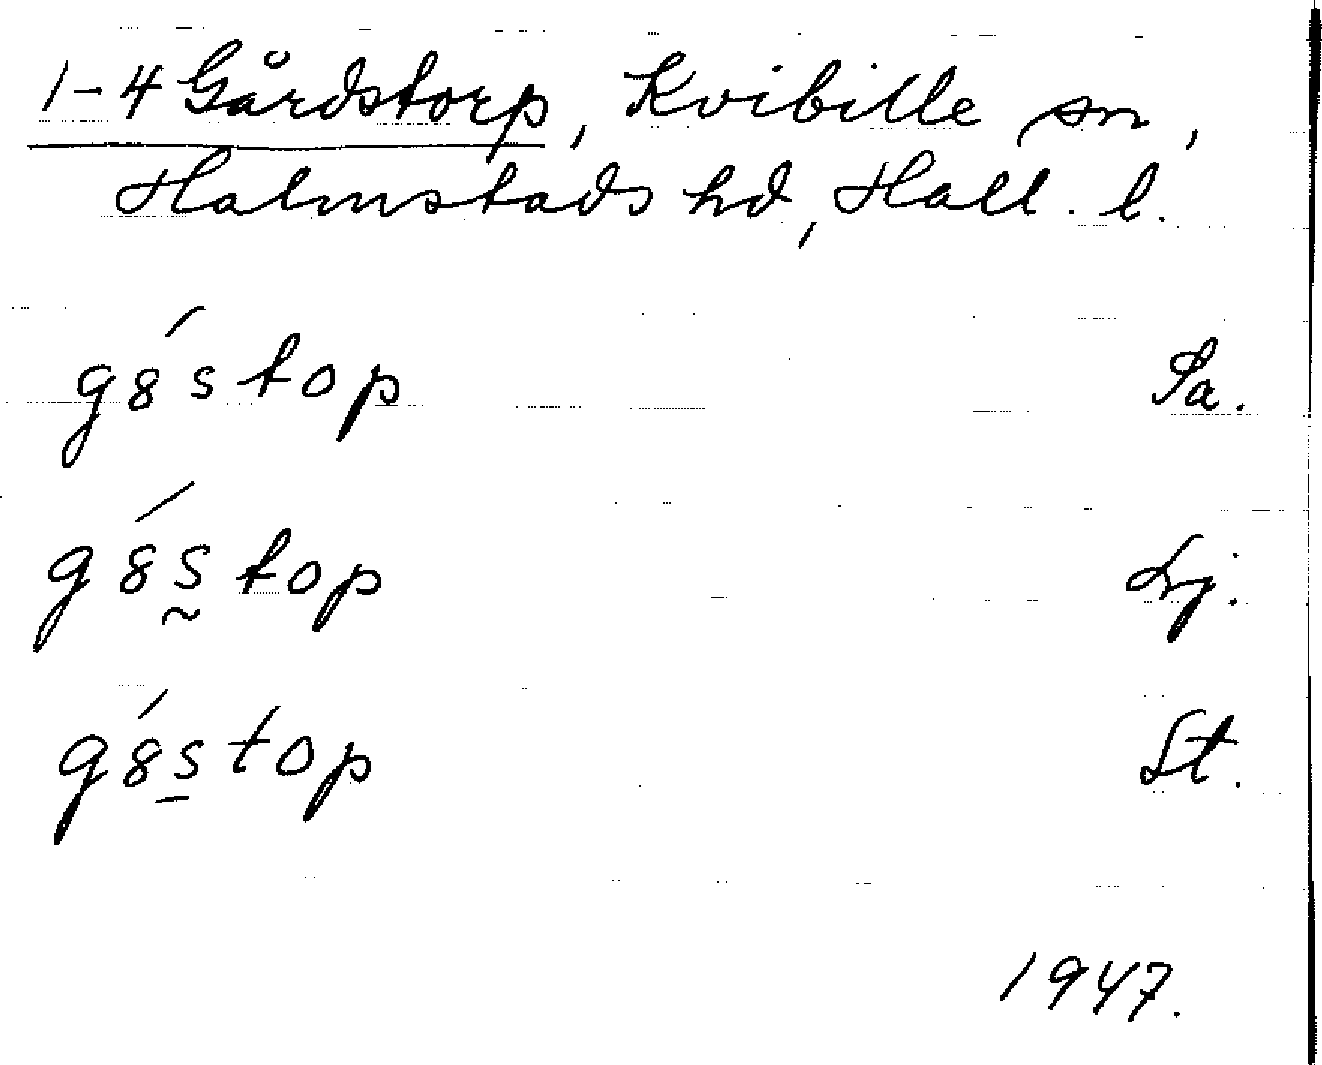 1-4 Gårdstorp, Kvibille sn,
Halmstads hd, Hall. l.
gȣ́stop Sa.
gȣ́s̰top Lj.
gȣ́s̱top St.
1947.